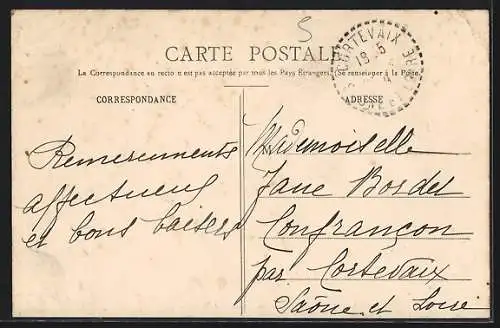 5
CARTE POSTALE
La Correspondance au recto n'est pas acceptée par tous les Pays Étrangers. (Se renseigner à la Poste.)
CORTEVAIX
18-5
CORRESPONDANCE
ADRESSE
Remerciements
affectueux
et bons baisers
Mademoiselle
Jane Bordet
Confrançon
par Cortevaix
Saône et Loire